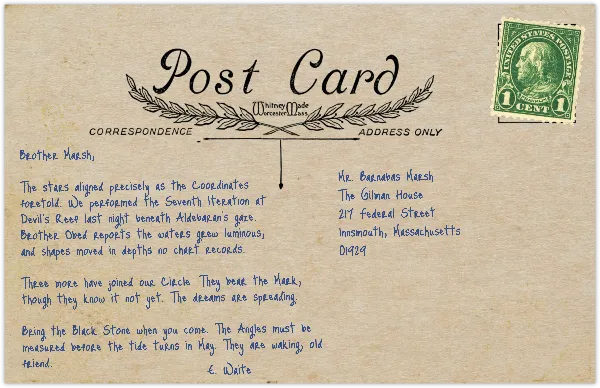 UNITED STATES POSTAGE
1 CENT 1
Post Card
Whitney Made
Worcester Mass
CORRESPONDENCE
ADDRESS ONLY
Brother Marsh,
The stars aligned precisely as the Coordinates
foretold. We performed the Seventh Iteration at
Devil's Reef last night beneath Aldebaran's gaze.
Brother Obed reports the waters grew luminous,
and shapes moved in depths no chart records.
Three more have joined our Circle. They bear the Mark,
though they know it not yet. The dreams are spreading.
Bring the Black Stone when you come. The Angles must be
measured before the tide turns in May. They are waking, old
friend.
E. Waite
Mr. Barnabas Marsh
The Gilman House
217 Federal Street
Innsmouth, Massachusetts
01929